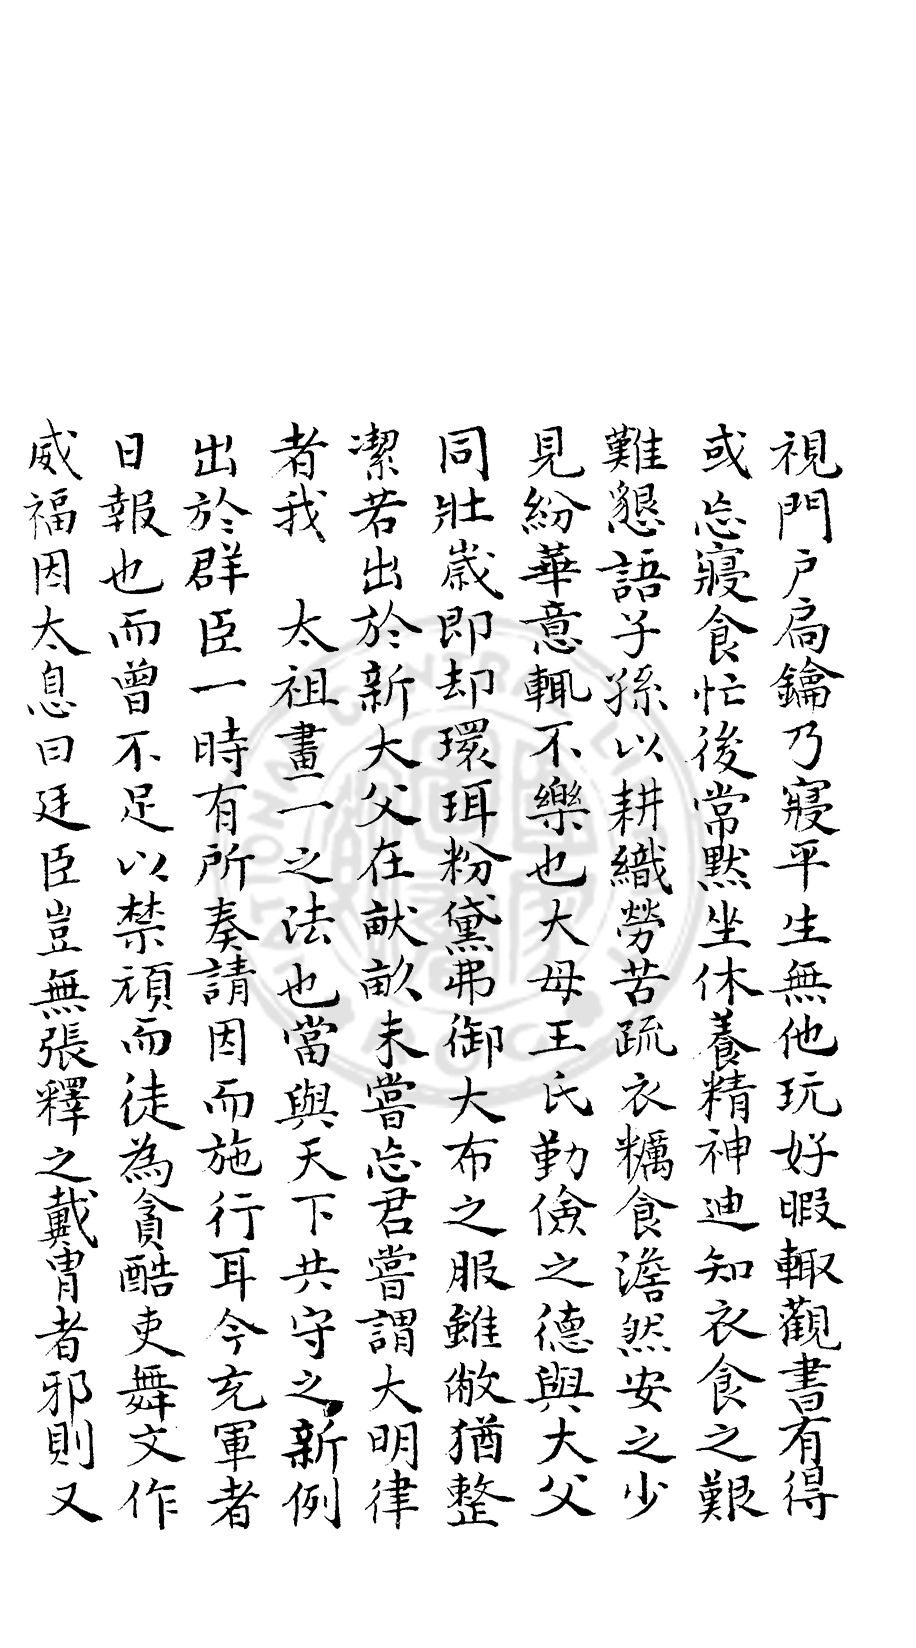 視門户扃鑰乃寢平生無他玩好暇輙觀書有得
或忘寢食忙後常默坐休養精神迪知衣食之艱
難懇語子孫以耕織勞苦疏衣糲食澹然安之少
見紛華意輙不樂也大母王氏勤儉之德與大父
同壯歲即却環珥粉黛弗御大布之服雖敝猶整
潔若出於新大父在畎畝未嘗忘君嘗謂大明律
者我 太祖畫一之法也當與天下共守之新例
出於群臣一時有所奏請因而施行耳今充軍者
日報也而曾不足以禁頑而徒為貪酷吏舞文作
威福因太息曰廷臣豈無張釋之戴冑者邪則又
NATIONAL CENTRAL LIBRARY